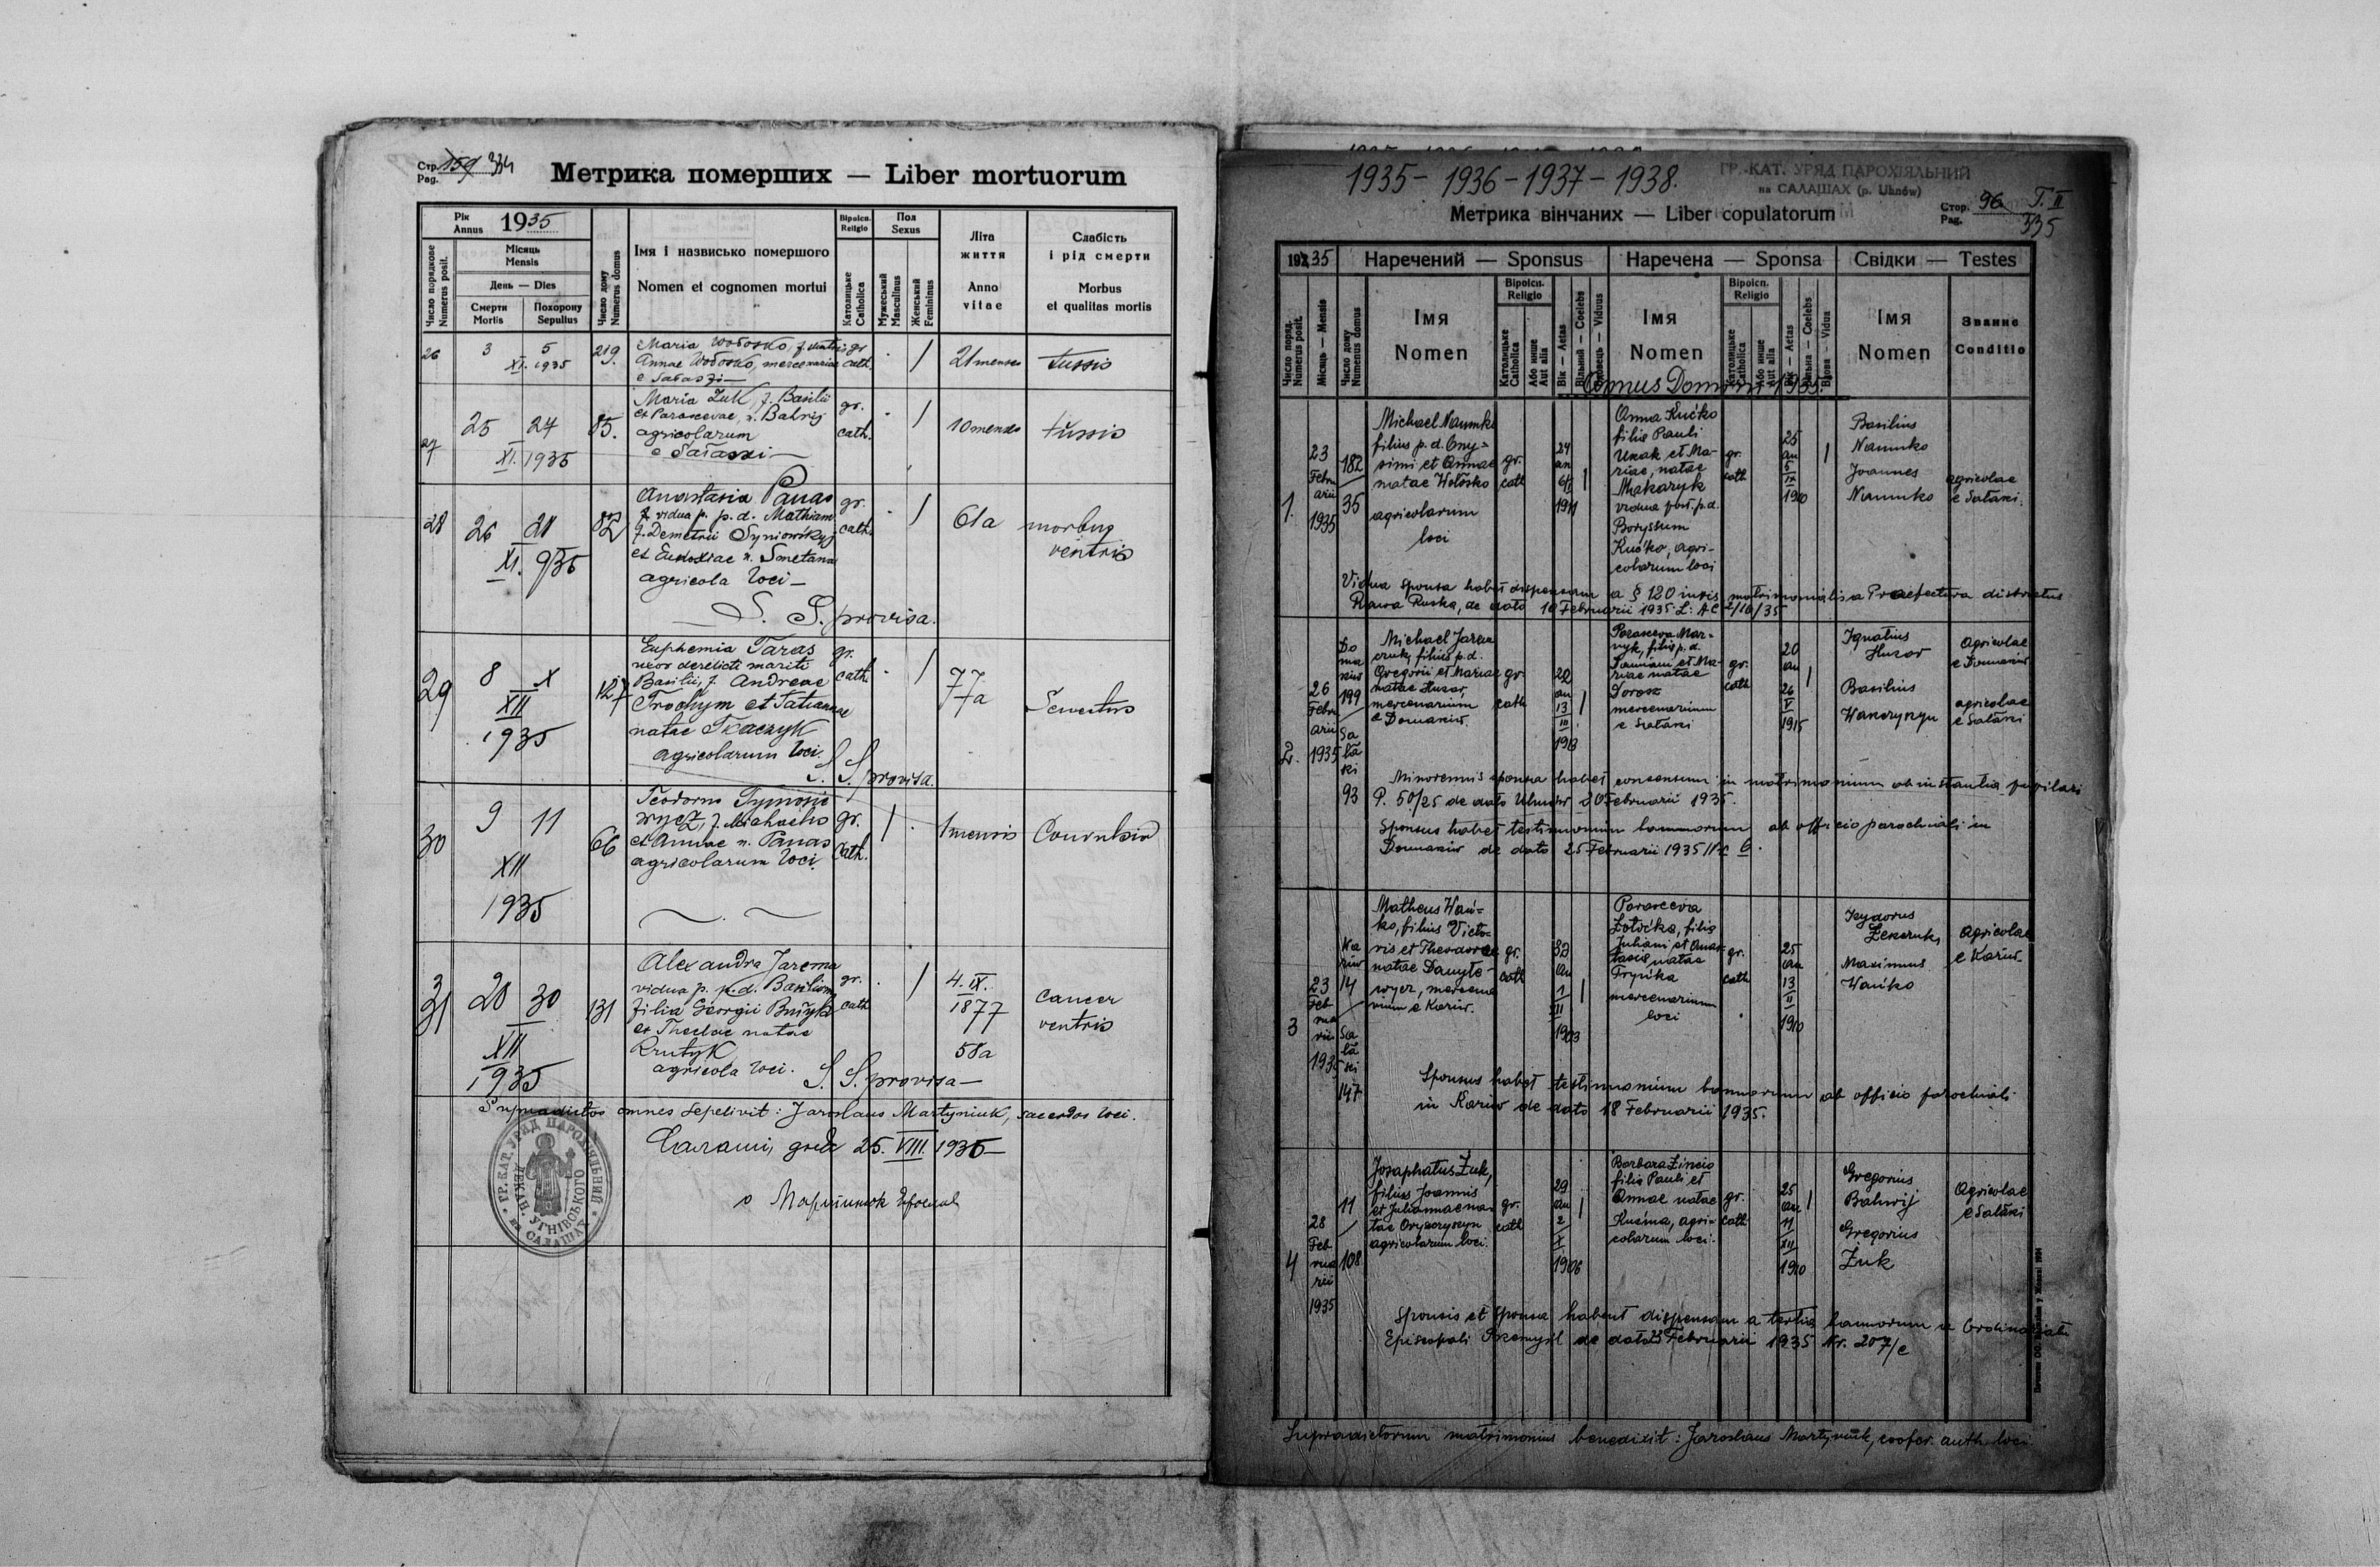 Стр. 159 334
Pag.
Метрика померших — Liber mortuorum
Рік
Annus 1935
Місяць
Mensis
День — Dies
Смерти
Mortis
Похорону
Sepultus
Число порядкове
Numerus posit.
Число дому
Numerus domus
Імя і назвисько помершого
Nomen et cognomen mortui
Віроісп.
Religio
Католицьке
Catholica
Пол
Sexus
Мужеський
Masculinus
Женський
Femininus
Літа
життя
Anno
vitae
Слабість
і рід смерти
Morbus
et qualitas mortis
26 3 5 XI. 1935 219.
Maria Wołoszko, f.
Annae Wołoszko, mercenariae
e Sałaszi
gr. cath. / 21 menses tussis
27 25 27 XI. 1935 85.
Maria Żuk, f. Basilii
et Parascevae, n. Balwij
agricolarum
e Sałaszi
gr. cath. / 10 menses tussis
28 26 28 XI. 935 82
Anastasia Panas
vidua p. p.d. Mathiam
f. Demetrii Syniowśkyj
et Eudoxiae n. Smetana
agricola loci
S. S. provisa.
gr. cath. / 61a morbus
ventris
29 8 X XII 1935 127
Euphemia Taras
uxor derelicti mariti
Basilii, f. Andreae
Trochym et Tatiannae
natae Tkaczyk
agricolarum loci.
S. S. provisa.
gr. cath. / 77a Senectus
30 9 11 XII 1935 66
Teodorus Tymosie
wycz, f. Michaelis
et Annae n. Panas
agricolarum loci.
gr. cath. / 1 mensis
31 28 30 XII 1935 131
Alexandra Jarema
vidua p. p.d. Basilium
filia Georgii
et Theclae natae
Krutyk
agricola loci. S. S. provisa
gr. cath / 4. IX. 1877 58a cancer
ventris
Supradictos omnes sepelivit: Jaroslaus Martyniuk, sacerdos loci.
Салаши, дня 25. VIII. 1936
о Мартинюк Ярослав
ГР. КАТ. УРЯД ПАРОХІЯЛЬНИЙ
на САЛАШАХ
ДЕКАН. УГНІВСЬКОГО
1935 - 1936 - 1937 - 1938.
ГР.-КАТ. УРЯД ПАРОХІЯЛЬНИЙ
на САЛАШАХ (p. Uhnów)
Метрика вінчаних — Liber copulatorum
Стор. 96 T. II
Pag. 335
1935
Наречений — Sponsus
Наречена — Sponsa
Свідки — Testes
Число поряд.
Numerus posit.
Місяць — Mensis
Число дому
Numerus domus
Імя
Nomen
Віроісп.
Religio
Католицьке
Catholica
Або инше
Aut alia
Вік — Aetas
Вільний — Coelebs
Вдовець — Viduus
Імя
Nomen
Віроісп.
Religio
Католицьке
Catholica
Або инше
Aut alia
Вік — Aetas
Вільна — Coelebs
Вдова — Vidua
Імя
Nomen
Званнє
Conditio
Annus Domini 1935.
1. 23 Februarii 1935 182 / 35
Michael Naumko
filius p.d. Ony-
simi et Annae
natae Wołosko
agricolarum
loci
gr. cath 24 an 1911
Anna Kućko
filia Pauli
Ukak et Ma-
riae, natae
Makaryk
vidua post. p.d.
Boryssum
Kućko, agri-
colarum loci
gr. cath 25 an 5 IX 1910
Basilius
Naumko
Joannes
Naumko
agricolae
e Sałaszi.
Vidua sponsa habet dispensam a § 120 iuris matrimonialis a Praefectura districtus
Rawa Ruska, de dato 19 Februarii 1935
2. 26 Februarii 1935 Domaszów 199 / Sałaszi 93
filius p.d.
Gregorii et Mariae
natae Huzar,
mercenarium
e Domaszów.
gr. cath 22 an 13 III 1913
Parasceva Mar-
Damiani et Ma-
riae natae
Dorosz
mercenarium
e Sałaszi
gr. cath 20 an 26 V 1915
Ignatius
Huzar
Basilius
Agricolae
e Domaszów
agricolae
e Sałaszi
Minorennis sponsa habet consensum in matrimonium ab instantia pupilari
P. 50/25 de dato Uhnów 20 Februarii 1935.
Sponsus habet testimonium bannorum ab officio parochiali in
Domaszów de dato 25 Februarii 1935
3 23 Februarii 1935 Karów 14 / Sałaszi 147
Matheus Wań-
ko, filius Victo-
ris et Theodorae
natae Danyłe-
wycz, mercena
rium e Karów.
gr. cath 32 an 1 XII 1903
Parasceva
Zołoćka, filia
Juliani et Anas-
tasiae natae
mercenarium
loci
gr. cath 25 an 13 II 1910
Izydorus
Maximus
Wańko
Agricolae
e Karów
Sponsus habet testimonium bannorum ab officio parochiali
in Karów de dato 18 Februarii 1935.
4 28 Februarii 1935 11 / 108
Josaphatus Żuk,
filius Joannis
et Juliannae na-
tae
agricolarum loci.
gr. cath 29 an 2 X 1906
Barbara
filia Pauli et
Annae natae
Kućma, agri-
colarum loci.
gr. cath 25 an 11 XII 1910
Gregorius
Balwij
Gregorius
Żuk
Agricolae
e Sałaszi
Sponsus et sponsa habent dispensam a tertia bannorum ex Ordinariatu
Episcopali Przemyśl de dato 25 Februarii 1935 Nr. 207/e
Supradictorum matrimonius benedixit: Jaroslaus Martyniuk, loci